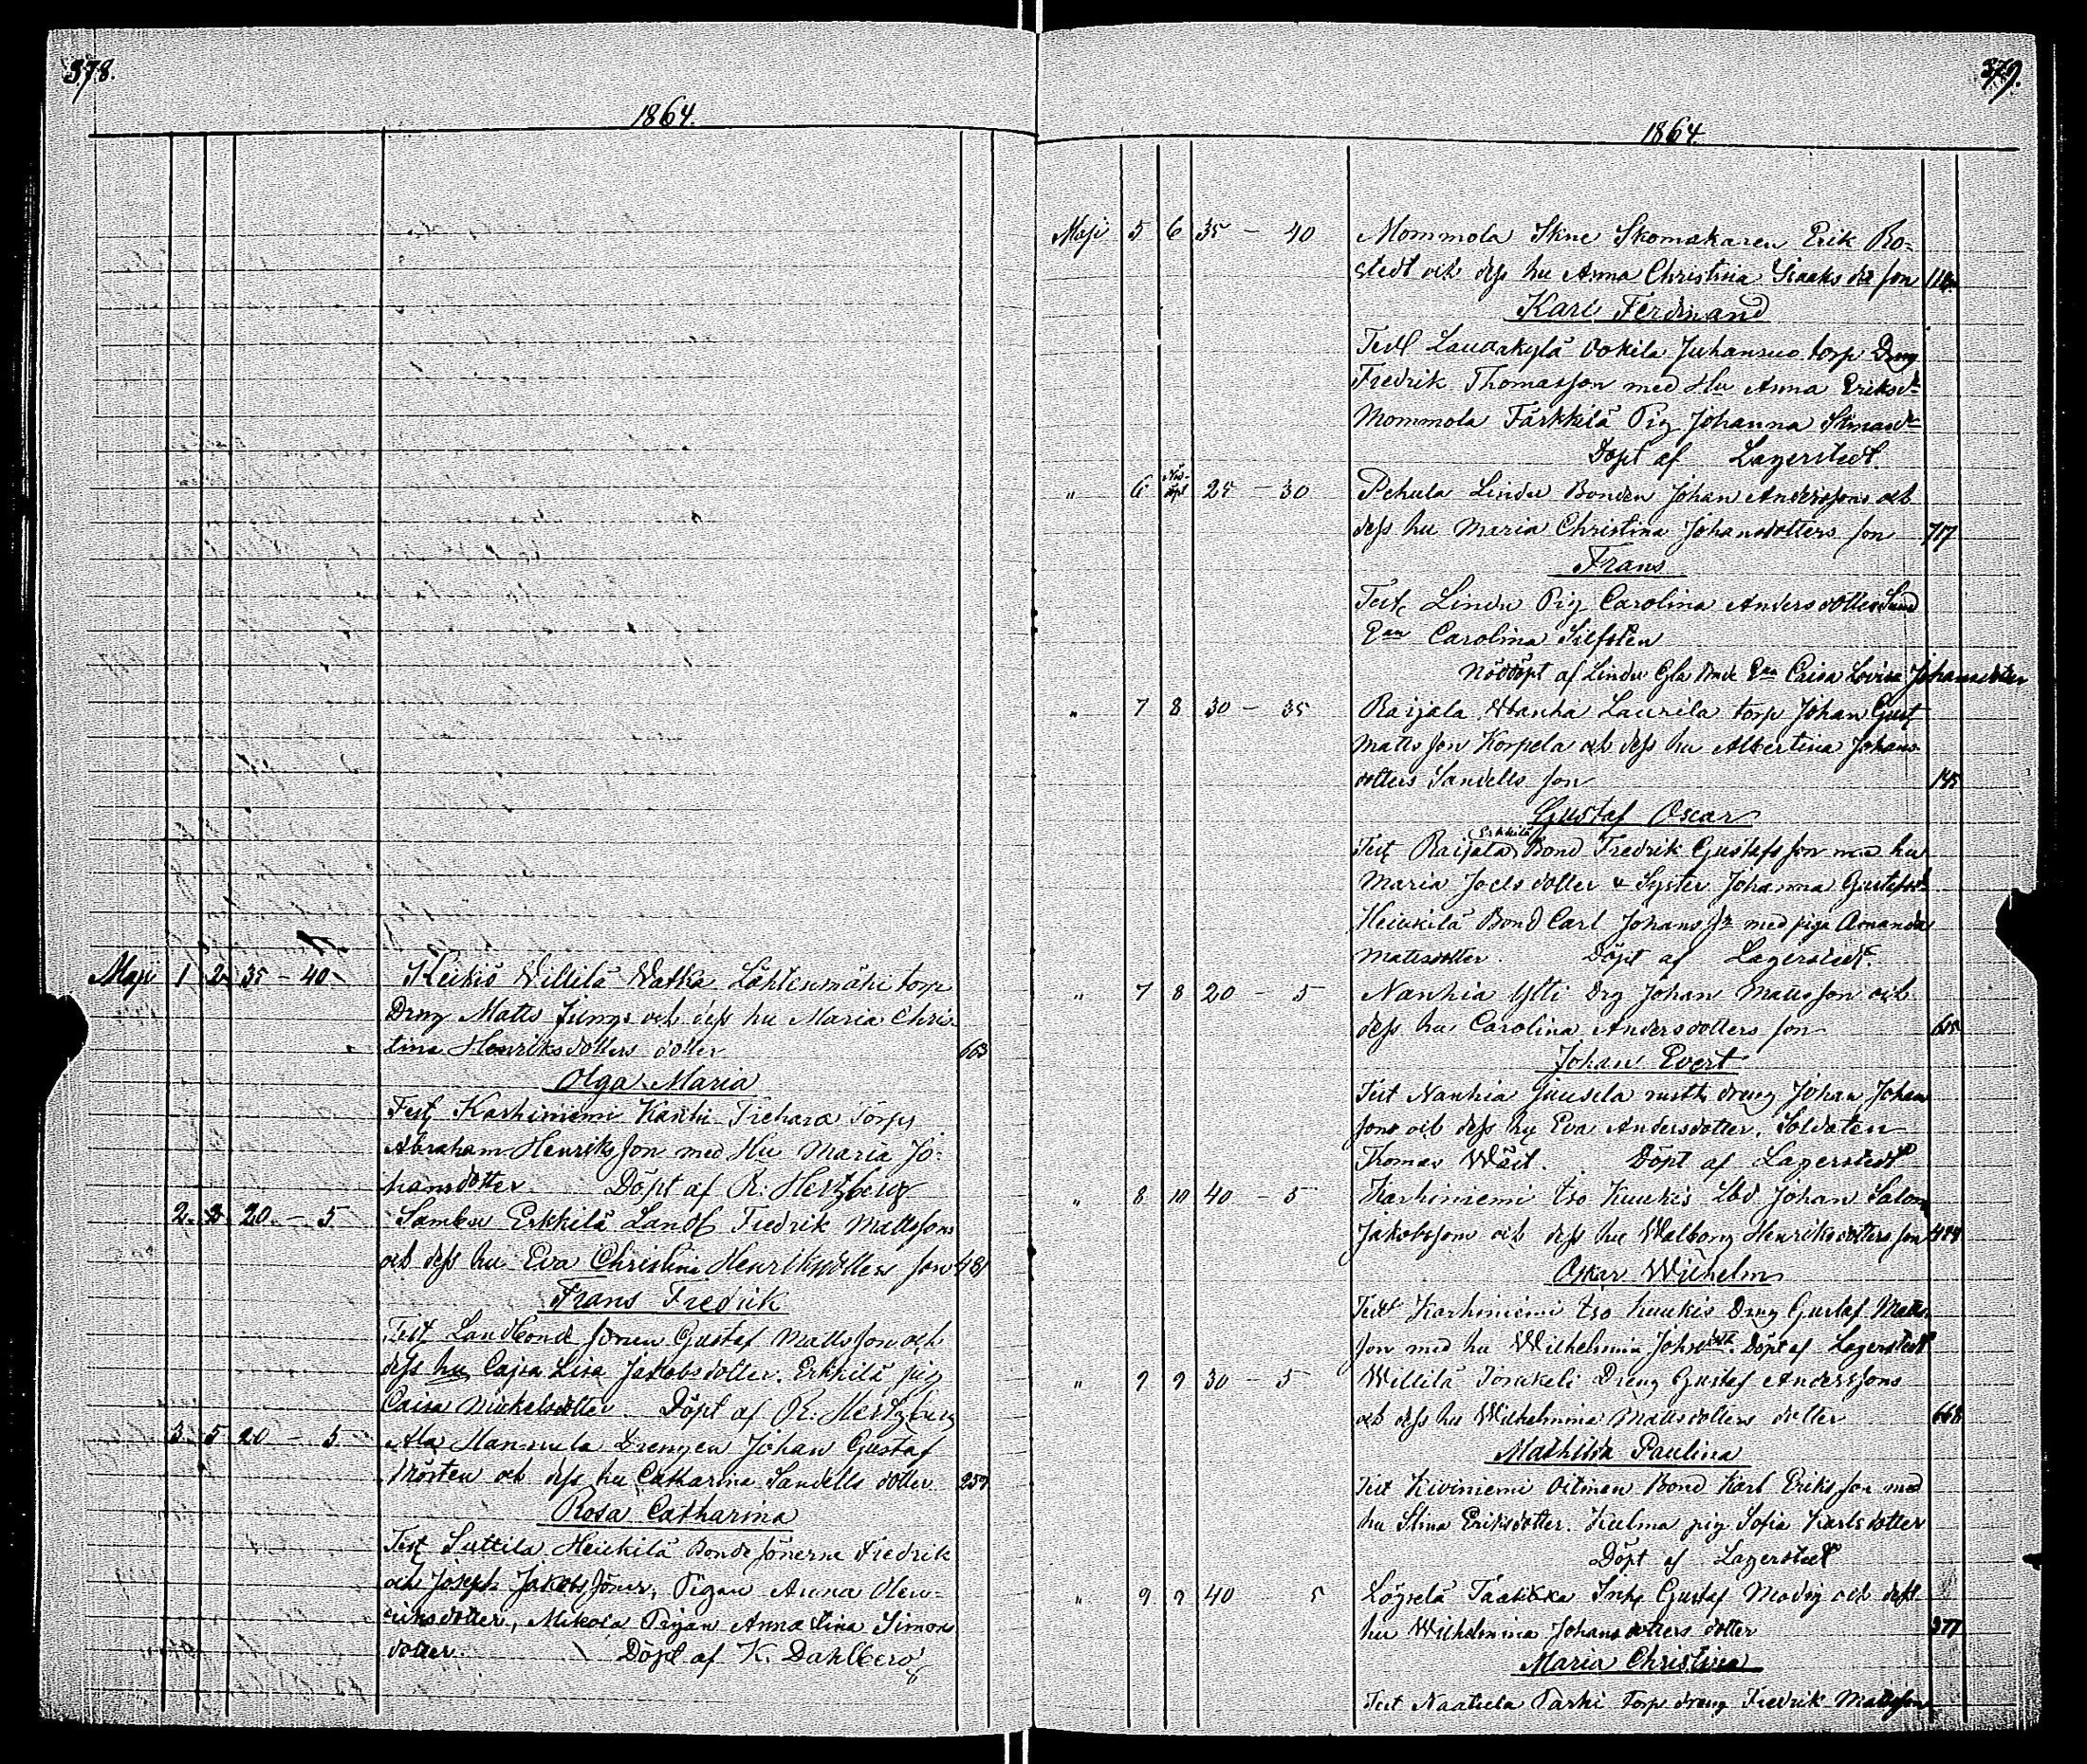 378.
1864.
Maji 1 2 35 - 40 Keikiö Willilä Watka Lähtenmäki torp
Dräng Matts Jungs och dess hu Maria Chris-
tina Henriksdotters dotter 663
Olga Maria
Test Karhiniemi Trehara Torp
Abraham Henriksson med Hu Maria Jo-
hansdotter Döpt af R. Hertzberg
2. 3 20 - 5 Sambu Erkkilä Landb Fredrik Mattssons
och dess hu Eva Christina Henriksdotters son 481
Frans Fredrik
Test Landbonde sonen Gustaf Mattsson och
dess hu Cajsa Lisa Jakobsdotter. Erkkilä pig
Caisa Michelsdotter. Döpt af R. Hertzberg
3. 5 20 - 5 Ala Mannula Drengen Johan Gustaf
Mörsten och dess hu Catharina Sandells dotter 257
Rosa Catharina
Test Suttila Heikkilä Bonde sönerne Fredrik
och Joseph Jakobs söner, Pigan Anna Hen-
riksdotter, Mikola Pigan Anna Stina Simons
dotter. Döpt af K. Dahlberg
379.
1864.
Maji 5 6 35 - 40 Mommola Skne Skomakaren Erik Bo-
stedt och dess hu Anna Christina Isaaks dr son
Karl Ferdinand
Test Lauakylä Ookila Juhansuo torp Dreng
Fredrik Thomasson med Hu Anna Eriksdr
Mommola Färkkilä Pig Johanna
Döpt af Lagerstedt.
" 6 Nöd-döpt 25 - 30 Pehula Lindu Bonden Johan Anderssons och
dess hu Maria Christina Johansdotters son 717
Frans
Test Lindu Pig Carolina Andersdotter
Enn Carolina Silfstén
Nöddöpt af Lindu Gla Bonde Enn Caisa Lovisa Johansdotter
" 7 8 30 - 35 Raijala Wanha Laurila torp Johan Gust
Matts son Korpela och dess hu Albertina Johans
dotters Sandells son 145
Gustaf Oscar
Test Raijala Erkkilä Bond Fredrik Gustafsson med hu
Maria Joelsdotter & Syster Johanna Gustafsdr
Heikkilä Bond Carl Johans sn med piga Amanda
Mattsdotter. Döpt af Lagerstedt.
" 7 8 20 - 5 Nanhia Ylli Drg Johan Mattsson och
dess hu Carolina Andersdotters son 615
Johan Evert
Test Nanhia Juusela rustb dreng Johan Johan
sons och dess hu Eva Andersdotter, Soldaten
Thomas Wäst. Döpt af Lagerstedt
" 8 10 40 - 5 Karhiniemi Iso Kuukis Lbd Johan Salom
Jakobsson och dess hu Walborg Henriksdotters son
Oskar Wilhelm
Test Karhiniemi Iso Kuukis Dreng Gustaf Matts
son med hu Wilhelmina Johsdotr. Döpt af Lagerstedt
" 9 9 30 - 5 Willilä Dreng Gustaf Anderssons
och dess hu Wilhelmina Mattsdotters dotter 668
Mathilda Paulina
Test Kiviniemi Bond Karl Eriks son med
hu Stina Eriksdotter. Kulma pig Sofia Karlsdotter
Döpt af Lagerstedt
" 9 9 40 5 Löysela Taatikka Inhs Gustaf Modig och dess
hu Wilhelmina Johansdotters dotter 377
Maria Christina
Test Naatula Parhi torp dreng Fredrik Mattsson